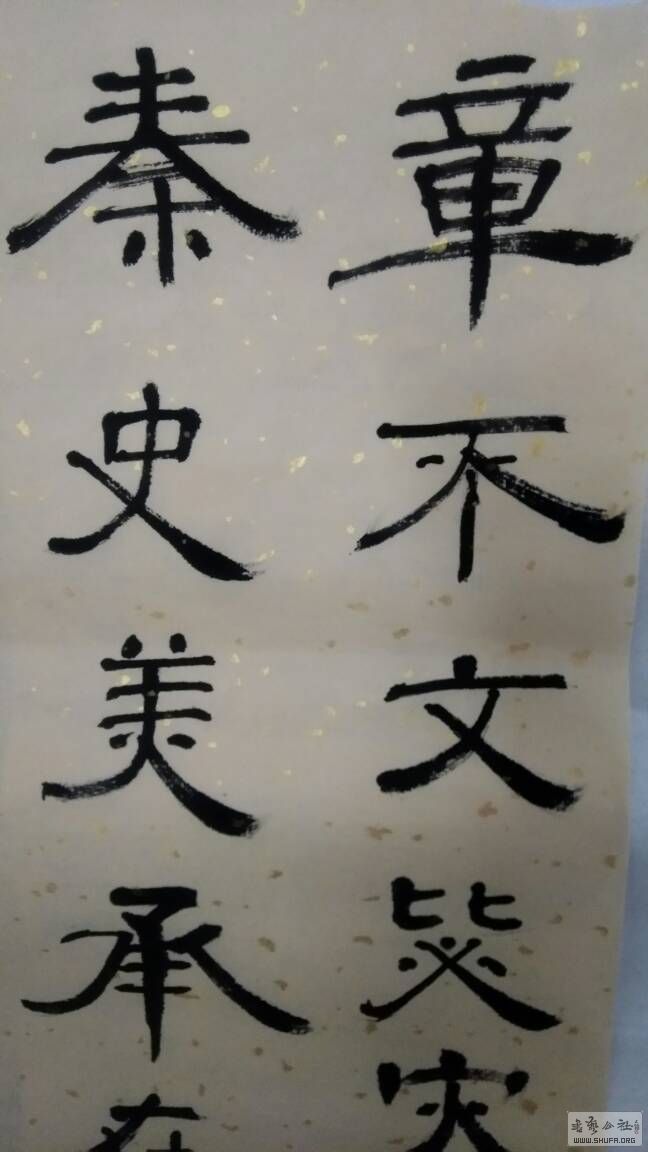 章不文毖
秦史美承在
書藝公社
WWW.SHUFA.ORG